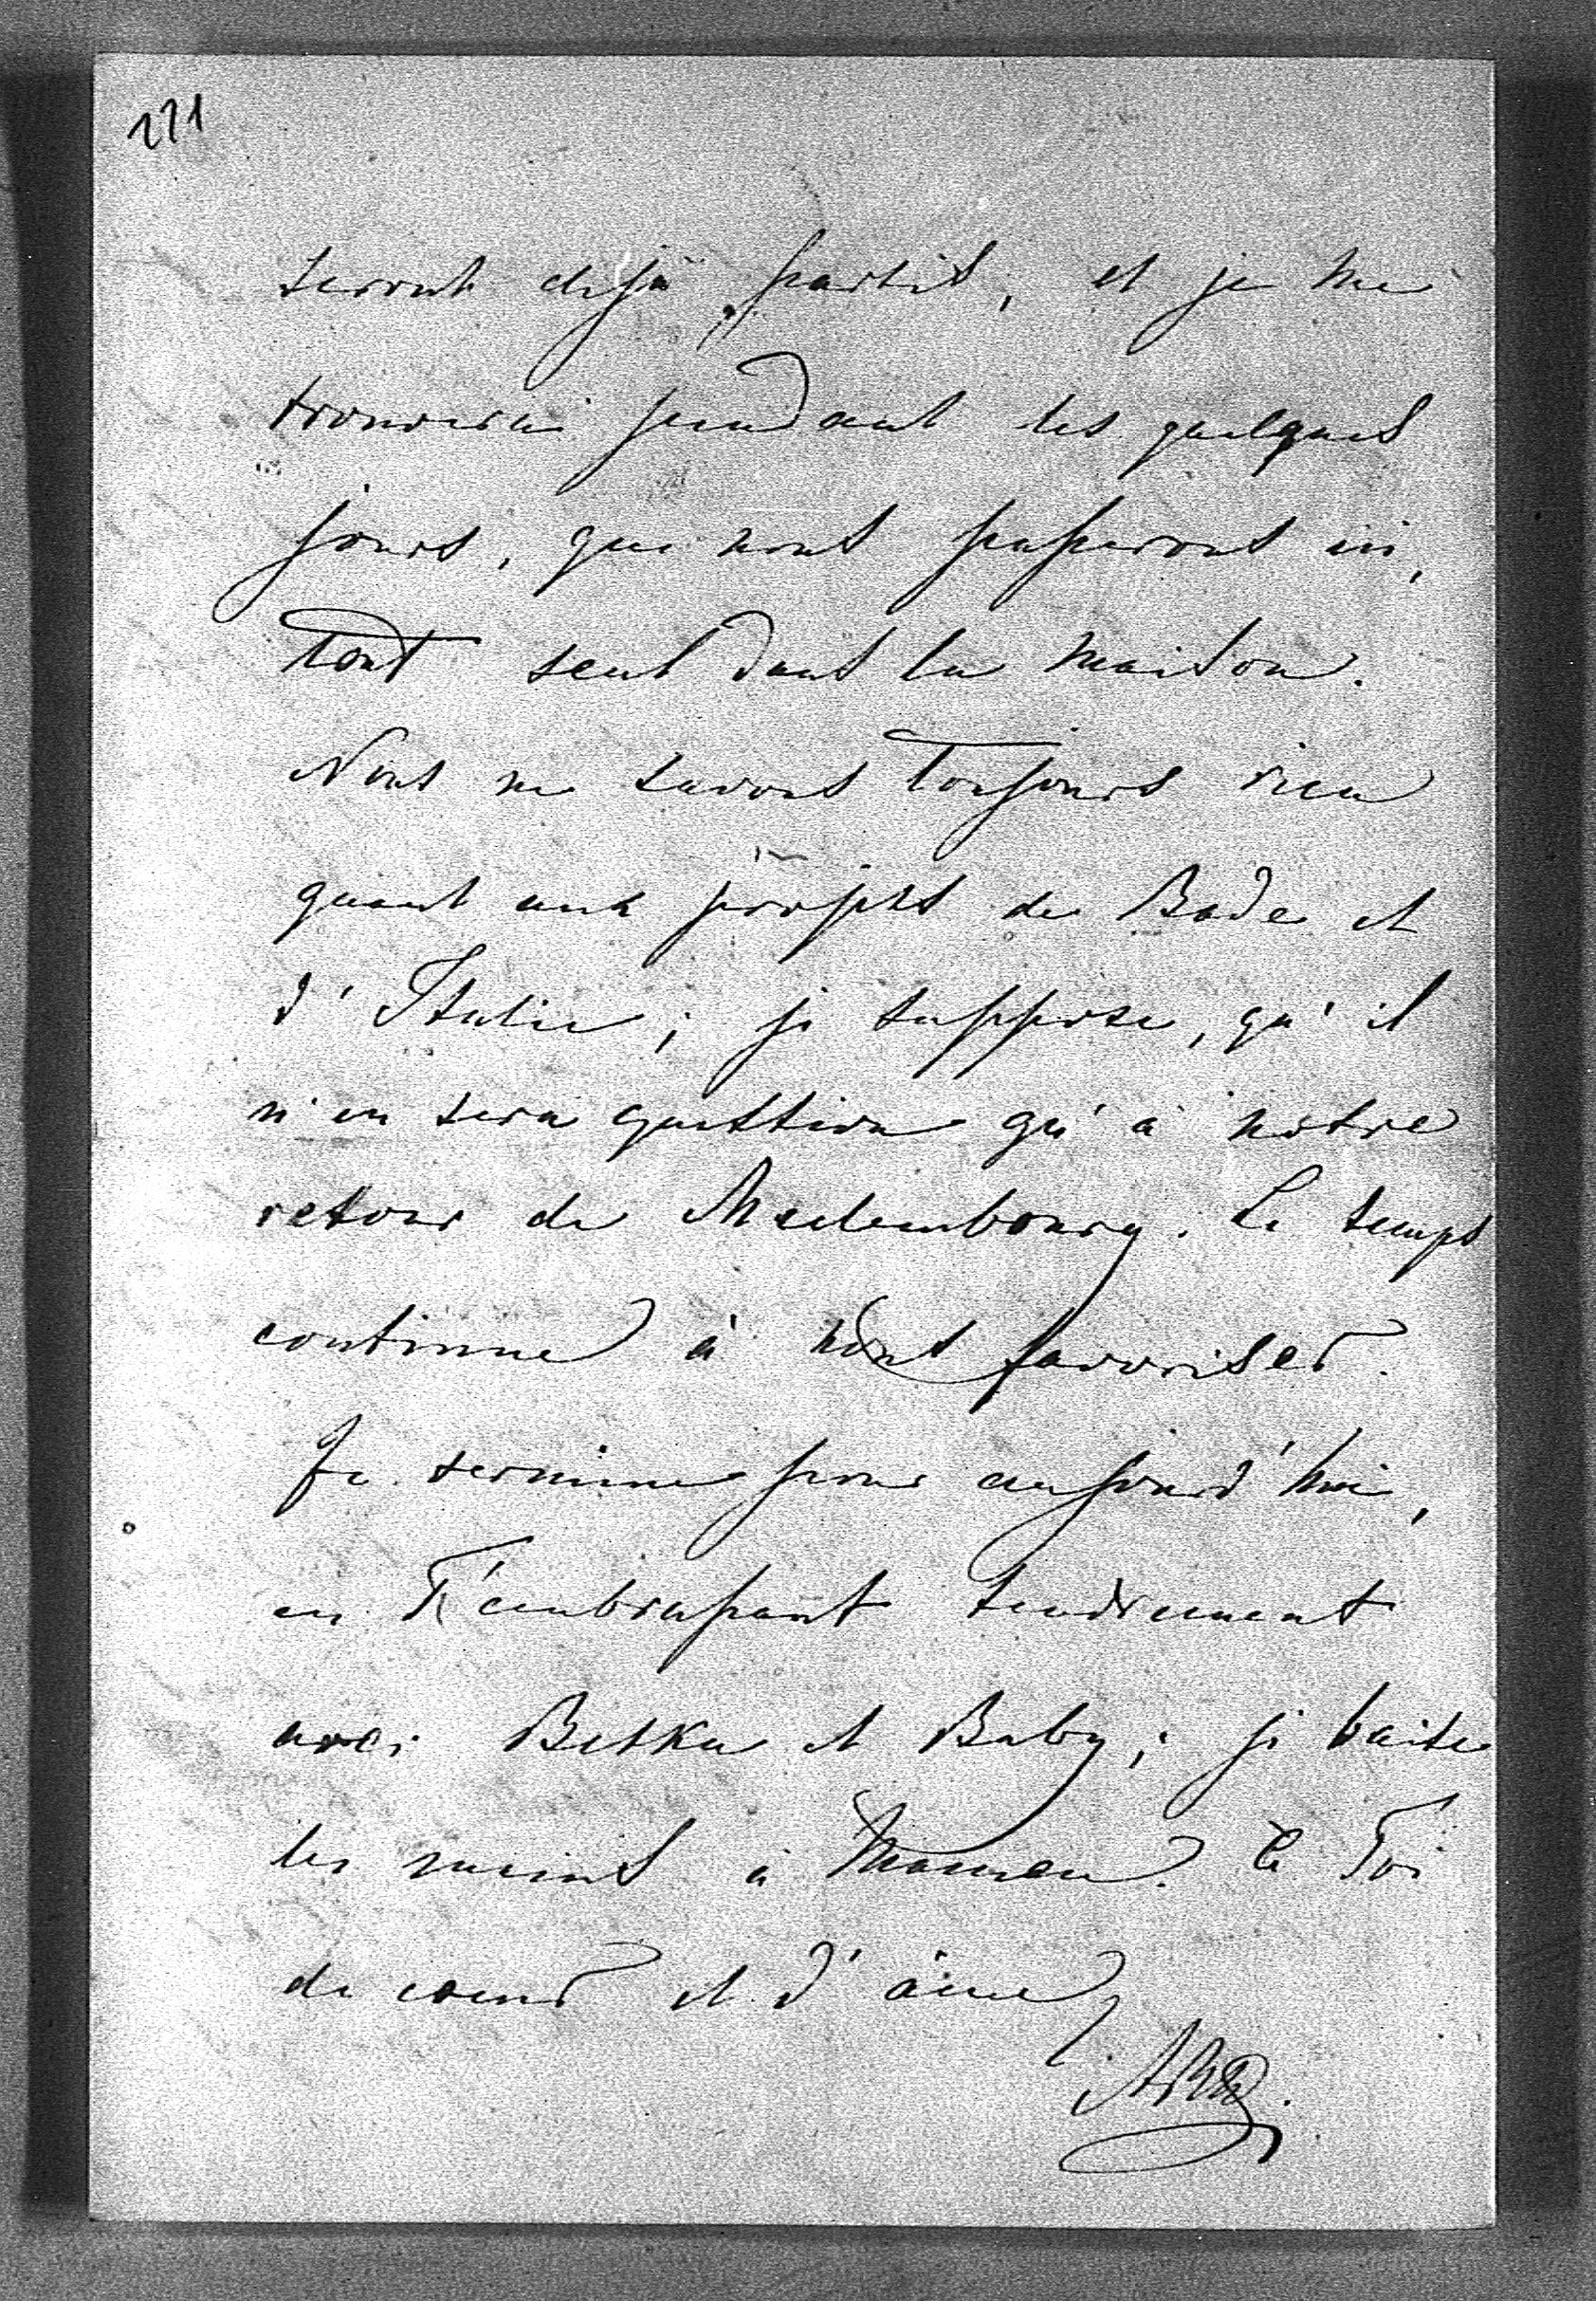 271
seront déjà partis, et je me
trouverai pendant les quelques
jours, que nous passerons ici,
tout seul dans la maison.
Nous ne savons toujours rien
quant aux projets de Bade et
d'Italie; je suppose, qu'il
n'en sera question qu'à notre
retour de Meclembourg. Le temps
continue à nous favoriser.
Je termine pour aujourd'hui,
en T'embrassant tendrement
avec Betka et Baby; je baise
les mains à Maman. à Toi
de coeur et d'âme